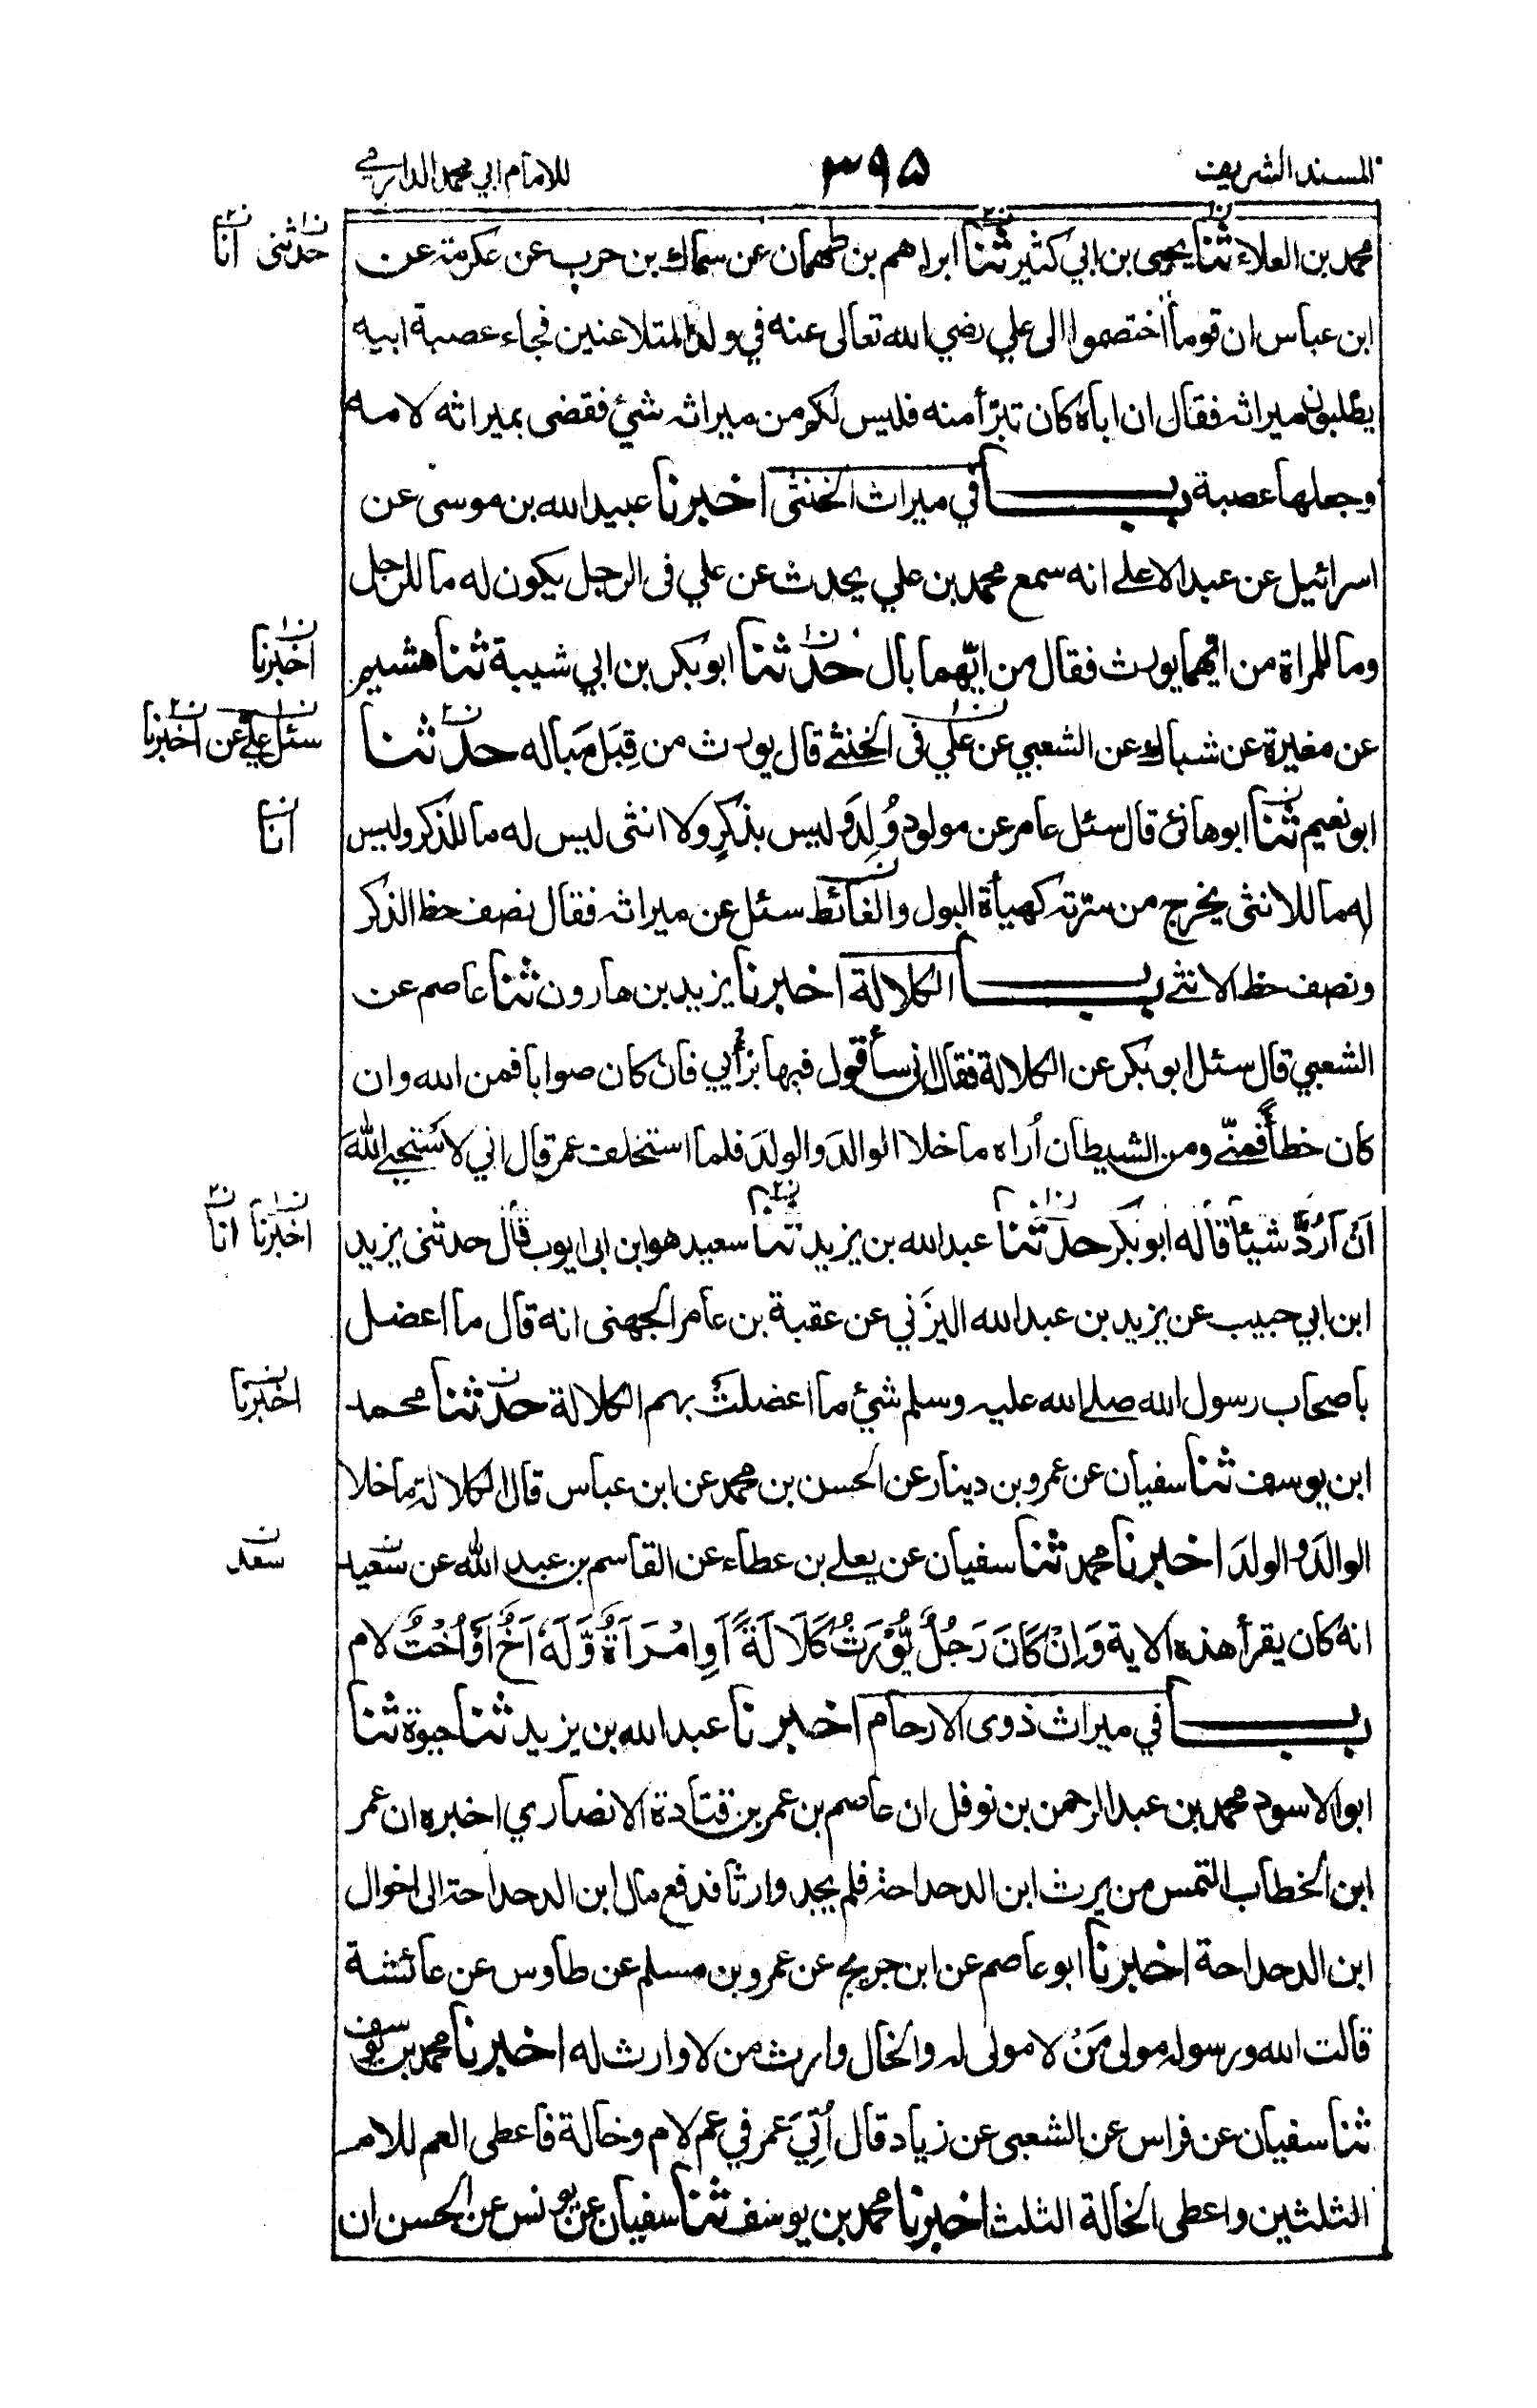 المسند الشريف ٣٩٥ للامام ابي محمد الدارمي
محمد بن العلاء ثنا يحيى بن ابي كثير ثنا ابراهيم بن طهمان عن سماك بن حرب عن عكرمة عن
حدثنى انا
ابن عباس ان قوما اختصموا الى علي رضي الله تعالى عنه في ولد المتلاعنين فجاء عصبة ابيه
يطلبون ميراثه فقال ان اباه كان تبرّأ منه فليس لكم من ميراثه شئ فقضى بميراثه لامه
وجعلها عصبة باب في ميراث الخنثى اخبرنا عبيد الله بن موسى عن
اسرائيل عن عبد الاعلى انه سمع محمد بن علي يحدث عن علي فى الرجل يكون له ما للرجل
وما للمراة من ايهما يورث فقال من ايّهما بال حدثنا ابو بكر بن ابي شيبة ثنا هشيم
اخبرنا
عن مغيرة عن شباك عن الشعبي عن علي فى الخنثى قال يورث من قِبَل مَباله حدثنا
سئل علي عن اخبرنا
ابو نعيم ثنا ابو هانئ قال سئل عامر عن مولود وُلِدَ وليس بذكرٍ ولا انثى ليس له ما للذكر وليس
انا
له ما للانثى يخرج من سرّته كهيأة البول والغائط سئل عن ميراثه فقال نصف حظ الذكر
ونصف حظ الانثى باب الكلالة اخبرنا يزيد بن هارون ثنا عاصم عن
الشعبي قال سئل ابو بكر عن الكلالة فقال اني سأقول فيها برأيي فان كان صوابا فمن الله وان
كان خطأ فمنّي ومن الشيطان اُراه ما خلا الوالدَ والولدَ فلما استخلف عمر قال اني لاستحيي اللهَ
اَنْ اَرُدَّ شيئا قاله ابو بكر حدثنا عبد الله بن يزيد ثنا سعيد هو ابن ابى ايوب قال حدثنى يزيد
اخبرنا انا
ابن ابي حبيب عن يزيد بن عبد الله اليَزَني عن عقبة بن عامر الجهنى انه قال ما اعضل
باصحاب رسول الله صلى الله عليه وسلم شئ ما اعضلت بهم الكلالة حدثنا محمد
اخبرنا
ابن يوسف ثنا سفيان عن عمرو بن دينار عن الحسن بن محمد عن ابن عباس قال الكلالة ما خلا
الوالدَ والولدَ اخبرنا محمد ثنا سفيان عن يعلى بن عطاء عن القاسم بن عبد الله عن سعيد
سعد
انه كان يقرأ هذه الاية وَاِنْ كَانَ رَجُلٌ يُّوْرَثُ كَلَالَةً اَوِ امْرَاَةٌ وَّلَهٗ اَخٌ اَوْ اُخْتٌ لام
باب في ميراث ذوى الارحام اخبرنا عبد الله بن يزيد ثنا حيوة ثنا
ابو الاسود محمد بن عبد الرحمن بن نوفل ان عاصم بن عمر بن قتادة الانصاري اخبره ان عمر
ابن الخطاب التمس من يرث ابن الدحداحة فلم يجد وارثا فدفع مال ابن الدحداحة الى اخوال
ابن الدحداحة اخبرنا ابو عاصم عن ابن جريج عن عمرو بن مسلم عن طاوس عن عائشة
قالت الله ورسوله مولى مَنْ لا مولى له والخال وارث من لا وارث له اخبرنا محمد بن يوسف
ثنا سفيان عن فراس عن الشعبى عن زياد قال اُتِيَ عمر في عم لام وخالة فاعطى العم للام
الثلثين واعطى الخالة الثلث اخبرنا محمد بن يوسف ثنا سفيان عن يونس عن الحسن ان